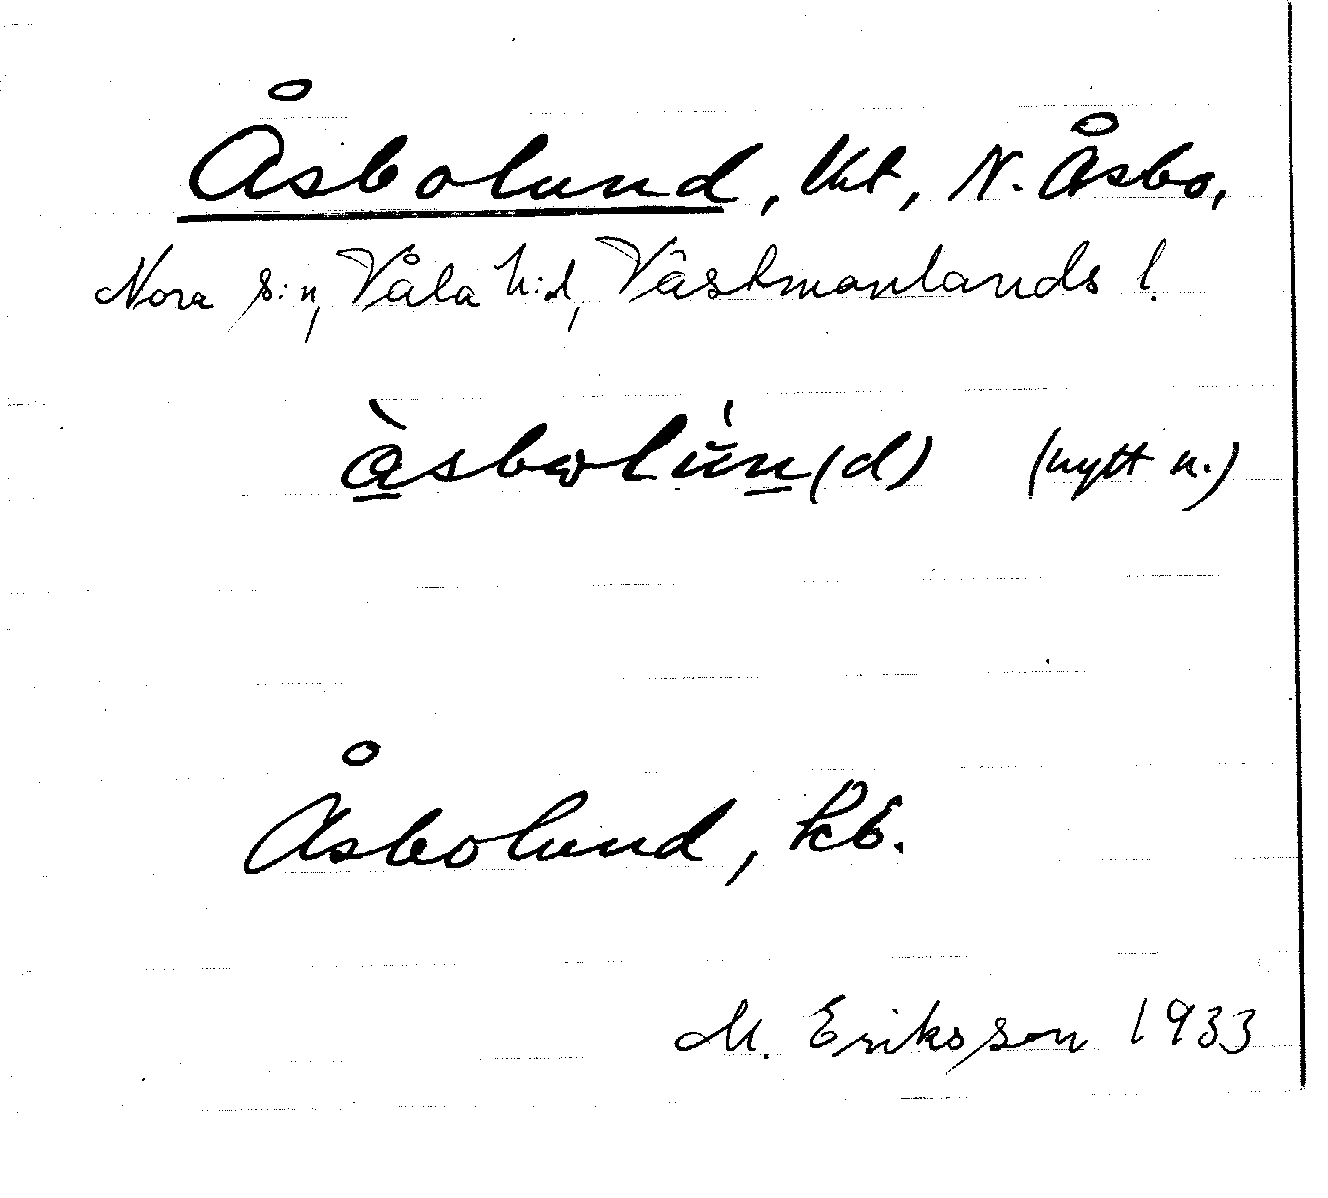 Åsbolund, lht, N. Åsbo,
Nora s:n, Våla h:d, Västmanlands l.
(d) (nytt n.)
Åsbolund, kb.
M. Eriksson 1933